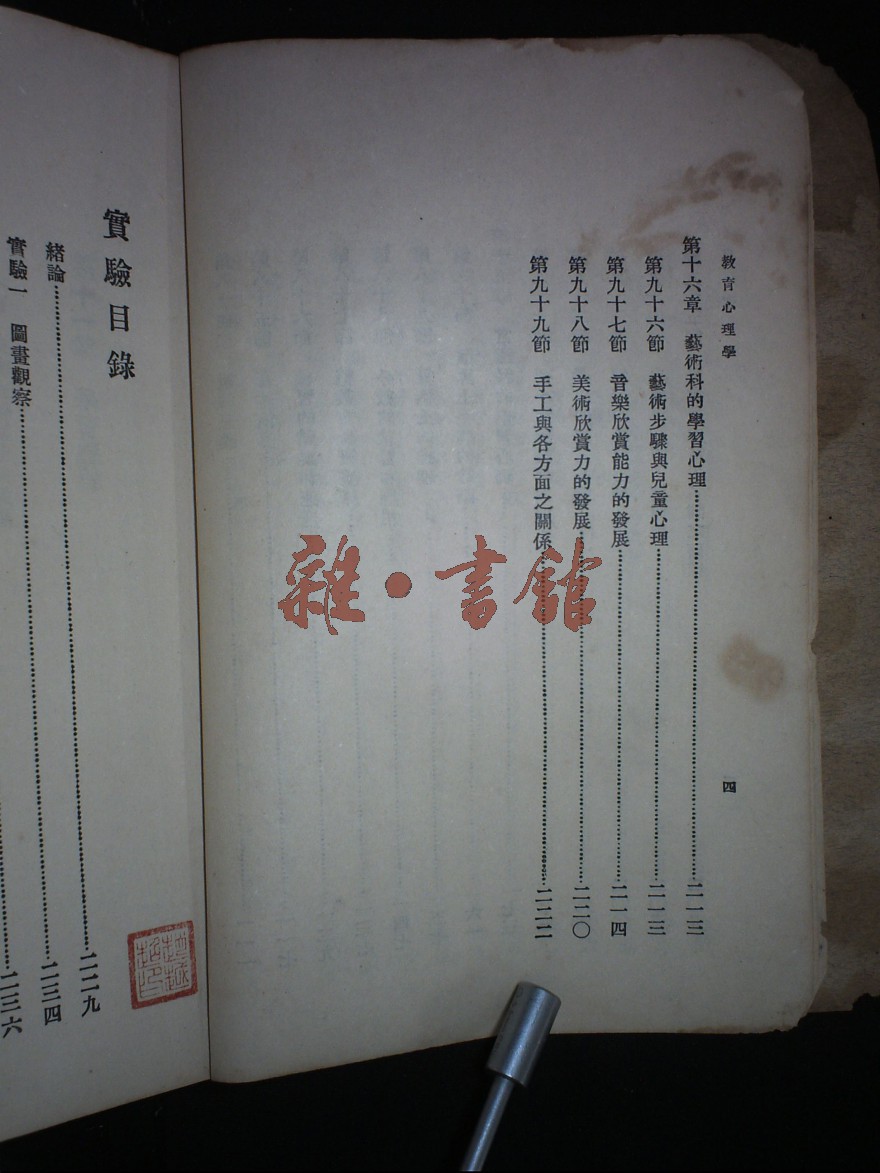 教育心理學
四
第十六章　藝術科的學習心理……二一三
第九十六節　藝術步驟與兒童心理……二一三
第九十七節　音樂欣賞能力的發展……二一四
第九十八節　美術欣賞力的發展……二二〇
第九十九節　手工與各方面之關係……二二二
實驗目錄
緒論……二二九
實驗一　圖畫觀察……二三四
……二三六
雜·書館